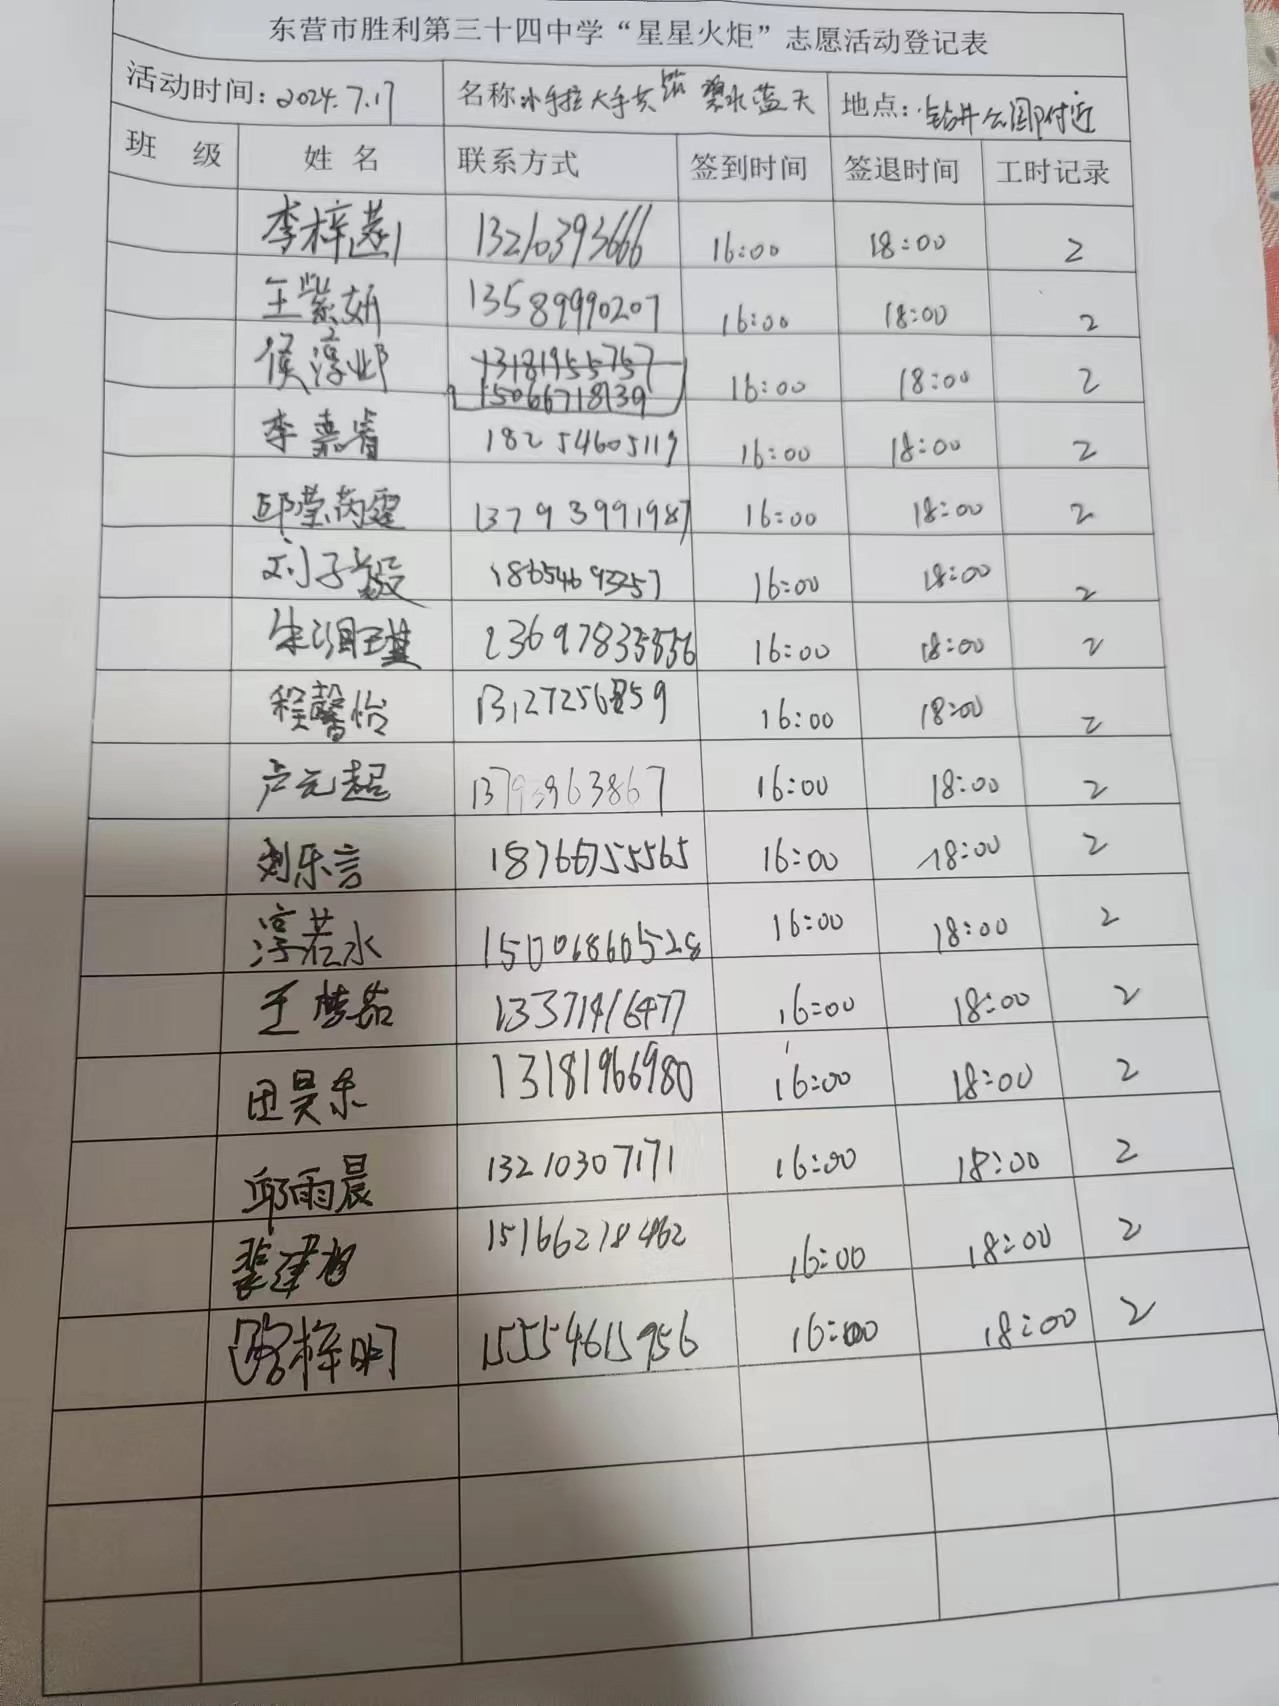 东营市胜利第三十四中学“星星火炬”志愿活动登记表
活动时间：2024.7.17 名称 小手拉大手共筑 碧水蓝天 地点：钻井公园附近
班 级 姓 名 联系方式 签到时间 签退时间 工时记录
李梓 13210393666 16:00 18:00 2
王紫妍 13589990207 16:00 18:00 2
侯淳 13181955757 16:00 18:00 2
15066718139
李嘉睿 18254605119 16:00 18:00 2
邱莹芮霆 13793991987 16:00 18:00 2
刘子毅 18654693257 16:00 18:00 2
朱 16:00 18:00 2
程馨怡 16:00 18:00 2
卢元超 13793963867 16:00 18:00 2
刘乐言 18766755565 16:00 18:00 2
淳若水 15006860528 16:00 18:00 2
王梦茹 13371416477 16:00 18:00 2
田昊东 13181966980 16:00 18:00 2
邱雨晨 13210307171 16:00 18:00 2
裴建旭 15166218462 16:00 18:00 2
路梓明 15554615956 16:00 18:00 2